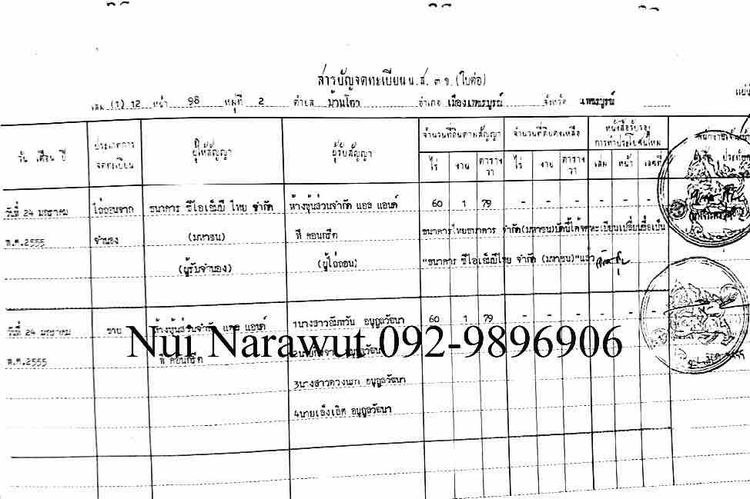 สารบัญจดทะเบียน น.ส. ๓ ข. (ใบต่อ)
เล่ม (1) 12 หน้า 98 หมู่ที่ 2 ตำบล บ้านโตก อำเภอ เมืองเพชรบูรณ์ จังหวัด เพชรบูรณ์
วัน เดือน ปี ประเภทการจดทะเบียน ผู้ให้สัญญา ผู้รับสัญญา จำนวนที่ดินตามสัญญา จำนวนที่ดินคงเหลือ
ไร่ งาน ตารางวา ไร่ งาน ตารางวา เล่ม หน้า เลขที่
วันที่ 24 มกราคม ไถ่ถอนจาก ธนาคาร ซีไอเอ็มบี ไทย จำกัด ห้างหุ้นส่วนจำกัด แอล แอนด์ 60 1 79 - - - - - -
พ.ศ.2555 จำนอง (มหาชน) พี คอนกรีต ธนาคารไทยธนาคาร จำกัด(มหาชน)บัดนี้ได้จดทะเบียนเปลี่ยนชื่อเป็น
(ผู้รับจำนอง) (ผู้ไถ่ถอน) "ธนาคาร ซีไอเอ็มบีไทย จำกัด (มหาชน)"แล้ว
วันที่ 24 มกราคม ขาย ห้างหุ้นส่วนจำกัด แอล แอนด์ 1นางสาวอัมพวัน อนุกูลวัฒนา 60 1 79 - - - - - -
Nui Narawut 092-9896906
พ.ศ.2555 พี คอนกรีต อนุกูลวัฒนา
3นางสาวดวงพร อนุกูลวัฒนา
อนุกูลวัฒนา